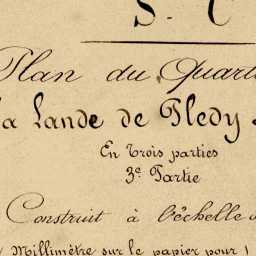 S. C
Plan du Quart
la Lande de Pledy
En trois parties
3e Partie
Construit à l'échelle d
1 Millimètre sur le papier pour 1